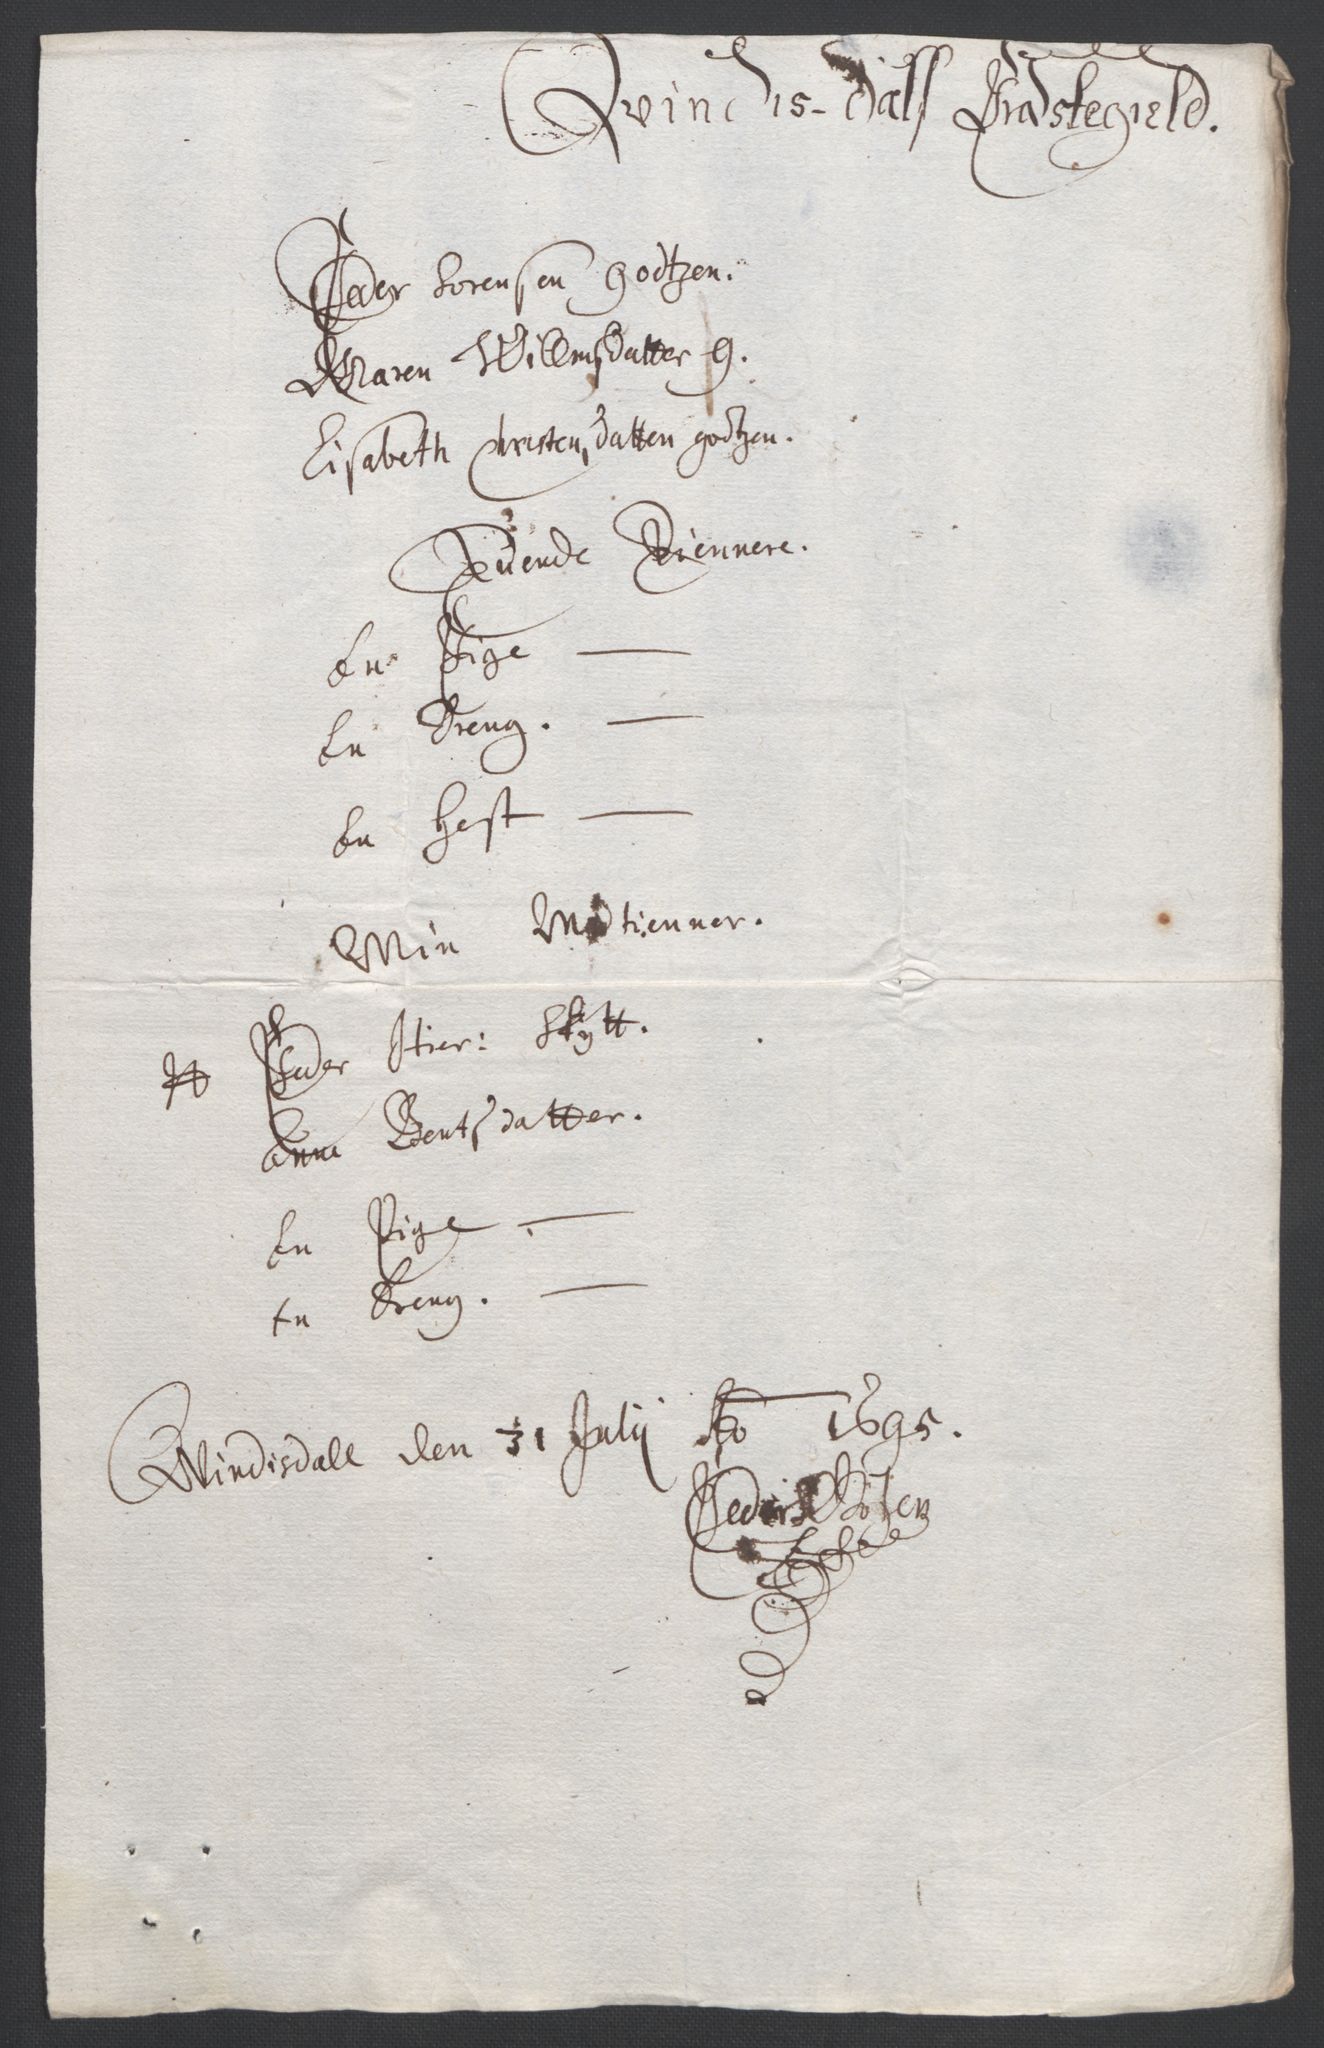 Qvindis-dalss Præstegield.
Peder Sørensen Godtzen.
Maren Willumsdatter G.
Elisabeth Christensdatter godtzen.
Tiennere.
En Pige
En Dreng.
En Hest
Min Medtienner.
Hr Peder Skytt.
Anne Bentsdatter.
En Pige
En Dreng.
Qvindisdall den 31 Julij Ao 1695.
Peder Gótzen